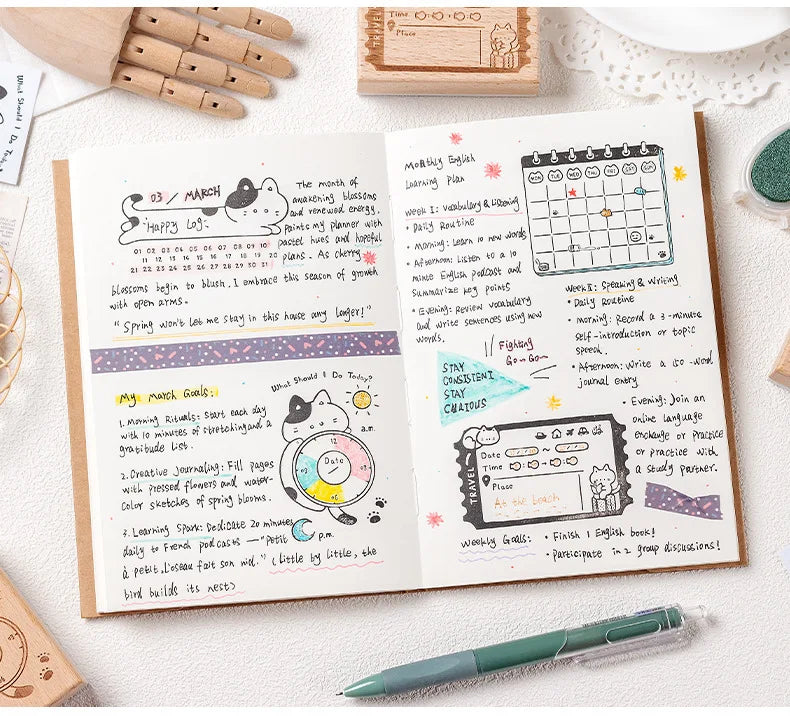 What Should I Do Today?
TRAVEL
Time
Place
03 / MARCH
Happy Log:
01 02 03 04 05 06 07 08 09 10
11 12 13 14 15 16 17 18 19 20
21 22 23 24 25 26 27 28 29 30 31
The month of
awakening blossoms
and renewed energy,
paints my planner with
pastel hues and hopeful
plans. As cherry
blossoms begin to blush, I embrace this season of growth
with open arms.
"Spring won't let me stay in this house any longer!"
My March Goals:
1. Morning Rituals: Start each day
with 10 minutes of stretching and a
gratitude list.
2. Creative Journaling: Fill pages
with pressed flowers and water-
color sketches of spring blooms.
3. Learning Spark: Dedicate 20 minutes
daily to French podcasts — "Petit
à petit, l'oseau fait son nid." (little by little, the
bird builds its nest)
What Should I Do Today?
a.m.
12
03
06
09
Date
p.m.
Monthly English
Learning Plan
Week I: Vocabulary & Listening
• Daily Routine
• Morning: Learn 10 new words
• Afternoon: Listen to a 10
minte English podcast and
Summarize key points
• Evening: Review vocabulary
and write sentences using new
words.
MON TUE WED THU FRI SAT SUN
Fighting
Go~Go~
STAY
CONSISTENT
STAY
CURIOUS
Week II: Speaking & Writing
• Daily Routine
• morning: Record a 3-minute
self-introduction or topic
speech.
• Afternoon: Write a 150-word
journal entry
• Evening: Join an
online language
enchauge or practice
or practice with
a study partner.
TRAVEL
Date
Time
Place
At the beach
Weekly Goals:
• Finish 1 English book!
• Participate in 2 group discussions!